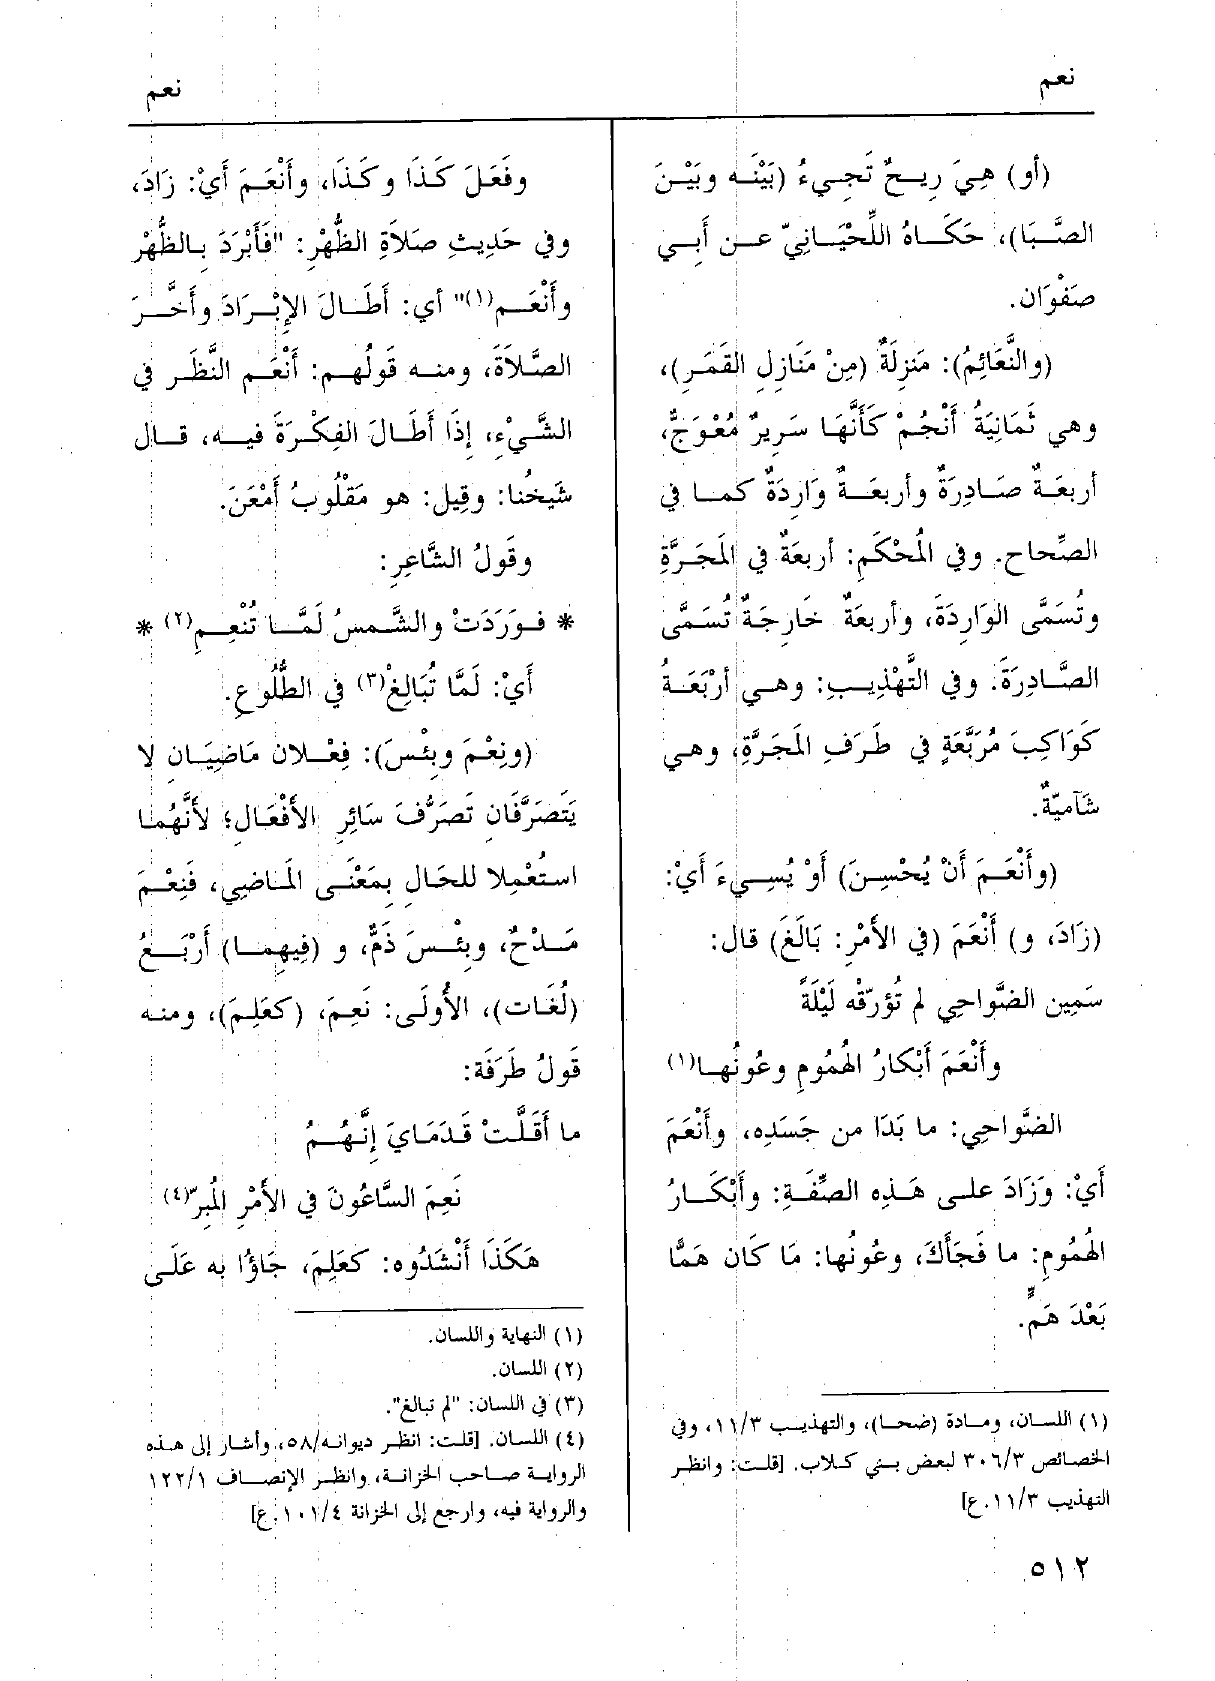 نعم
نعم
(أو) هِيَ رِيحٌ تَجِيءُ (بَيْنَه وبَيْنَ
الصَّبَا)، حَكَاهُ اللِّحْيَانِيّ عن أَبِي
صَفْوَان.
(والنَّعَائِمُ): مَنزِلَةٌ (مِنْ مَنَازِلِ القَمَرِ)،
وهي ثَمَانِيَةُ أَنْجُمْ كَأَنَّهَا سَرِيرٌ مُعْوَجٌّ،
أربعَةٌ صَادِرَةٌ وأربعَةٌ وَارِدَةٌ كما في
الصِّحاح. وفي المُحْكَمِ: أربعَةٌ في المَجَرَّةِ
وتُسَمَّى الوَارِدَةَ، وأربعَةٌ خَارِجَةٌ تُسَمَّى
الصَّادِرَةَ. وفي التَّهْذِيبِ: وهي أرْبَعَةُ
كَوَاكِبَ مُرَبَّعَةٍ في طَرَفِ المَجَرَّةِ، وهي
شَآمِيّةٌ.
(وأَنْعَمَ أَنْ يُحْسِنَ) أَوْ يُسِيءَ أَيْ:
(زَادَ، و) أَنْعَمَ (في الأَمْرِ: بَالَغَ) قال:
سَمِين الضَّواحِي لم تُؤرّقْه لَيْلَةً
وأَنْعَمَ أَبْكَارُ الهُمُومِ وعُونُها(١)
الضَّواحِي: ما بَدَا من جَسَدِه، وأَنْعَمَ
أَيْ: وَزَادَ على هَذِه الصِّفَةِ: وأَبْكَارُ
الهُمُومِ: ما فَجَأَكَ، وعُونُها: مَا كَان هَمًّا
بَعْدَ هَمٍّ.
(١) اللسان، ومادة (ضحا)، والتهذيب ١١/٣، وفي
الخصائص ٣٠٦/٣ لبعض بني كلاب. [قلت: وانظر
التهذيب ١١/٣.ع]
وفَعَلَ كَذَا وكَذَا، وأَنْعَمَ أَيْ: زَادَ،
وفي حَدِيثِ صَلاَةِ الظُّهْرِ: "فَأَبْرَدَ بِالظُّهْرِ
وأَنْعَم(١)" أي: أَطَالَ الإِبْرَادَ وأَخَّرَ
الصَّلاَةَ، ومنه قَولُهم: أَنْعَم النَّظَر في
الشَّيْءِ، إِذَا أَطَالَ الفِكْرَةَ فيه، قال
شَيخُنا: وقِيل: هو مَقْلُوبُ أَمْعَنَ.
وقَولُ الشَّاعِرِ:
* فوَرَدَتْ والشَّمسُ لَمَّا تُنْعِمِ(٢) *
أَيْ: لَمَّا تُبَالِغْ(٣) في الطُّلُوعِ.
(ونِعْمَ وبِئْسَ): فِعْلان مَاضِيَانِ لا
يَتَصَرَّفَانِ تَصَرُّفَ سَائِرِ الأَفْعَالِ؛ لأَنَّهُما
استُعْمِلا للحَالِ بِمَعْنَى المَاضِي، فَنِعْمَ
مَدْحٌ، وبِئْسَ ذَمٌّ، و (فِيهِما) أَرْبَعُ
(لُغَات)، الأُولَى: نَعِمَ، (كعَلِمَ)، ومنه
قَولُ طَرَفَة:
ما أَقَلَّتْ قَدَمَايَ إِنَّهُمُ
نَعِمَ السَّاعُونَ في الأَمْرِ المُبِرّ(٤)
هَكَذَا أَنْشَدُوه: كعَلِمَ، جَاؤُا به عَلَى
(١) النهاية واللسان.
(٢) اللسان.
(٣) في اللسان: "لم تبالغ".
(٤) اللسان. [قلت: انظر ديوانه/٥٨، وأشار إلى هذه
الرواية صاحب الخزانة، وانظر الإنصاف ١٢٢/١
والرواية فيه، وارجع إلى الخزانة ١٠١/٤.ع]
٥١٢